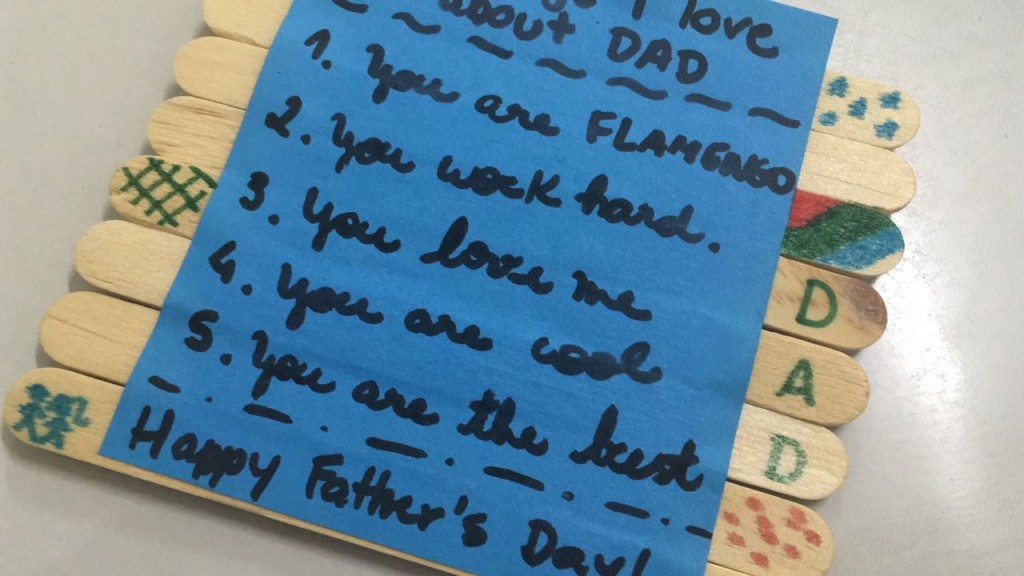 I love
about DAD
1. You are FLAMENGO
2. You work hard.
3. You love me
4. You are cool
5. You are the best
Happy Father's Day!
D
A
D